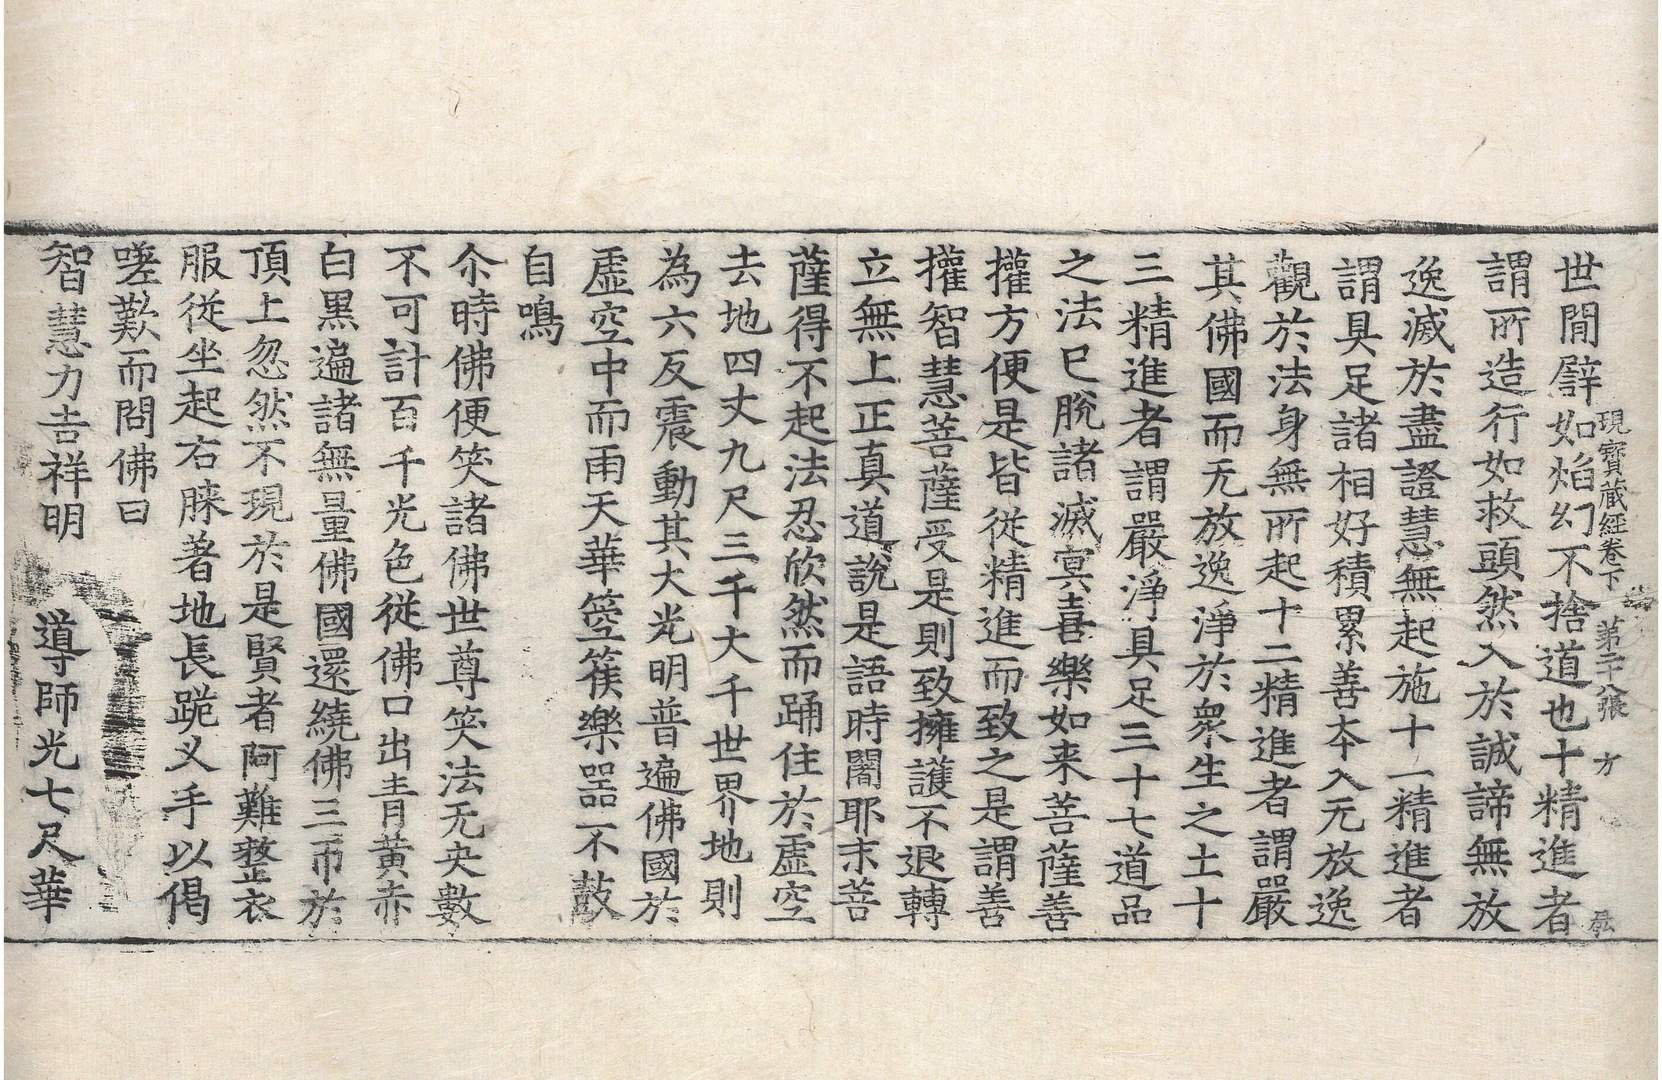 現寶藏經卷下 第二十八張 方
世閒譬如焰幻不捨道也十精進者
謂所造行如救頭然入於誠諦無放
逸滅於盡證慧無起施十一精進者
謂具足諸相好積累善夲入无放逸
觀於法身無所起十二精進者謂嚴
其佛國而无放逸淨於衆生之土十
三精進者謂嚴淨具足三十七道品
之法已脫諸滅冥喜樂如来菩薩善
攉方便是皆從精進而致之是謂善
攉智慧菩薩受是則致擁護不退轉
立無上正真道說是語時闍耶末菩
薩得不起法忍欣然而踊住於虛空
去地四丈九尺三千大千世界地則
為六反震動其大光明普遍佛國於
虛空中而雨天華箜篌樂器不鼓
自鳴
尒時佛便笑諸佛世尊笑法无央數
不可計百千光色從佛口出青黃赤
白黑遍諸無量佛國還繞佛三帀於
頂上忽然不現於是賢者阿難整衣
服從坐起右膝著地長跪义手以偈
嗟歎而問佛曰
智慧力吉祥明 導師光七尺華